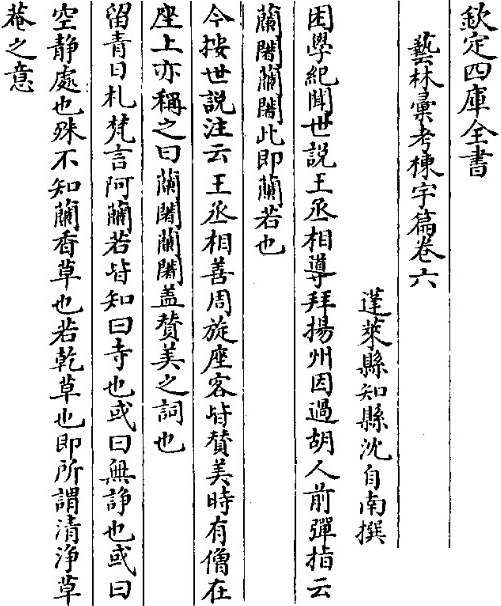 欽定四庫全書
藝林彚考棟宇篇卷六
蓬萊縣知縣沈自南撰
困學紀聞世說王丞相導拜揚州因過胡人前彈指云
蘭闍蘭闍此即蘭若也
今按世說注云王丞相善周旋座客皆賛美時有僧在
座上亦稱之曰蘭闍蘭闍盖賛美之詞也
留青日札梵言阿蘭若皆知曰寺也或曰無諍也或曰
空静處也殊不知蘭香草也若乾草也即所謂清浄草
菴之意